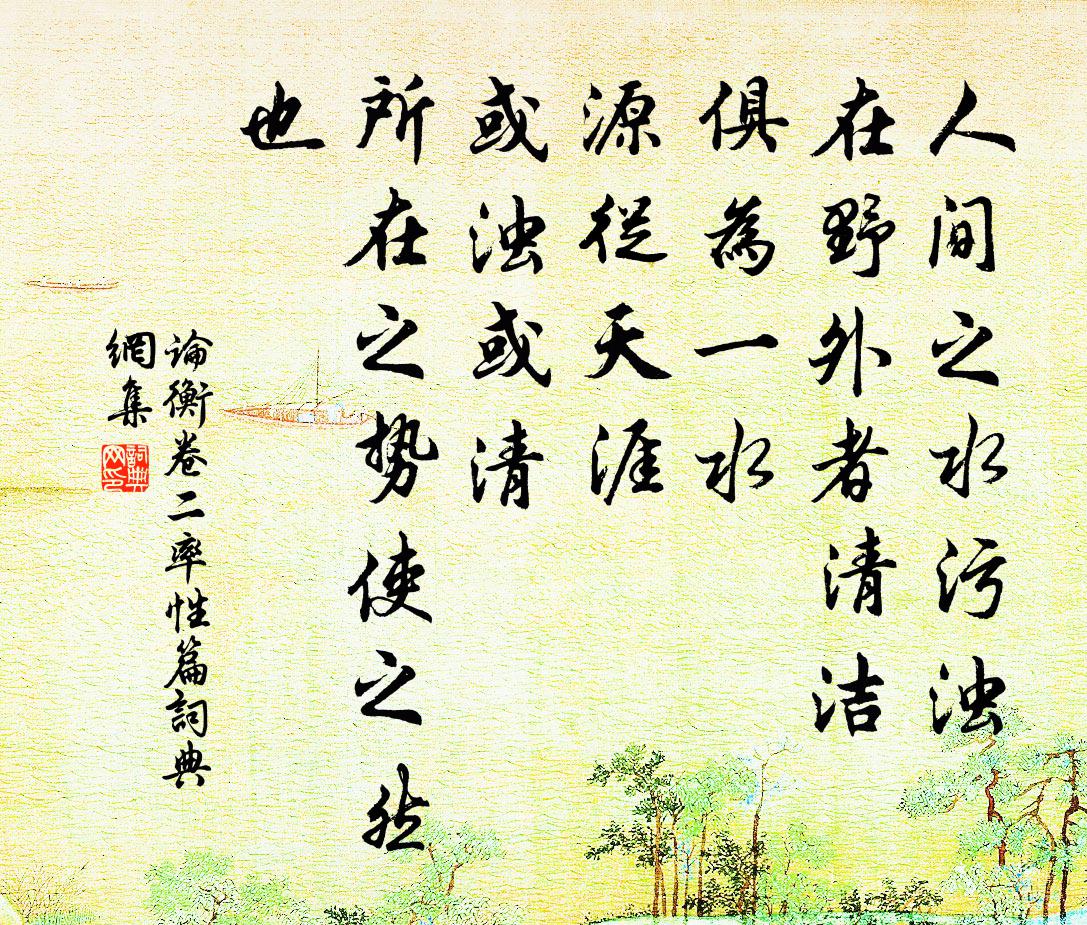 人间之水污浊
在野外者清洁
俱為一水
源從天涯
或浊或清
所在之势使之然
也
論衡卷二率性篇詞典
網集
詞典
网印